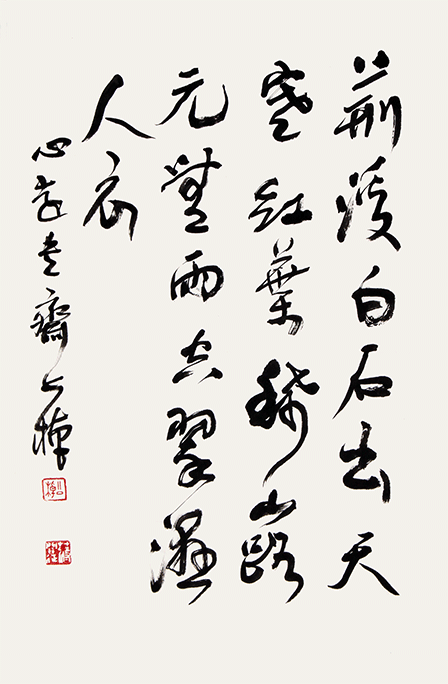 荊溪白石出天
寒紅葉稀山路
元無雨空翠濕
人衣
心齋